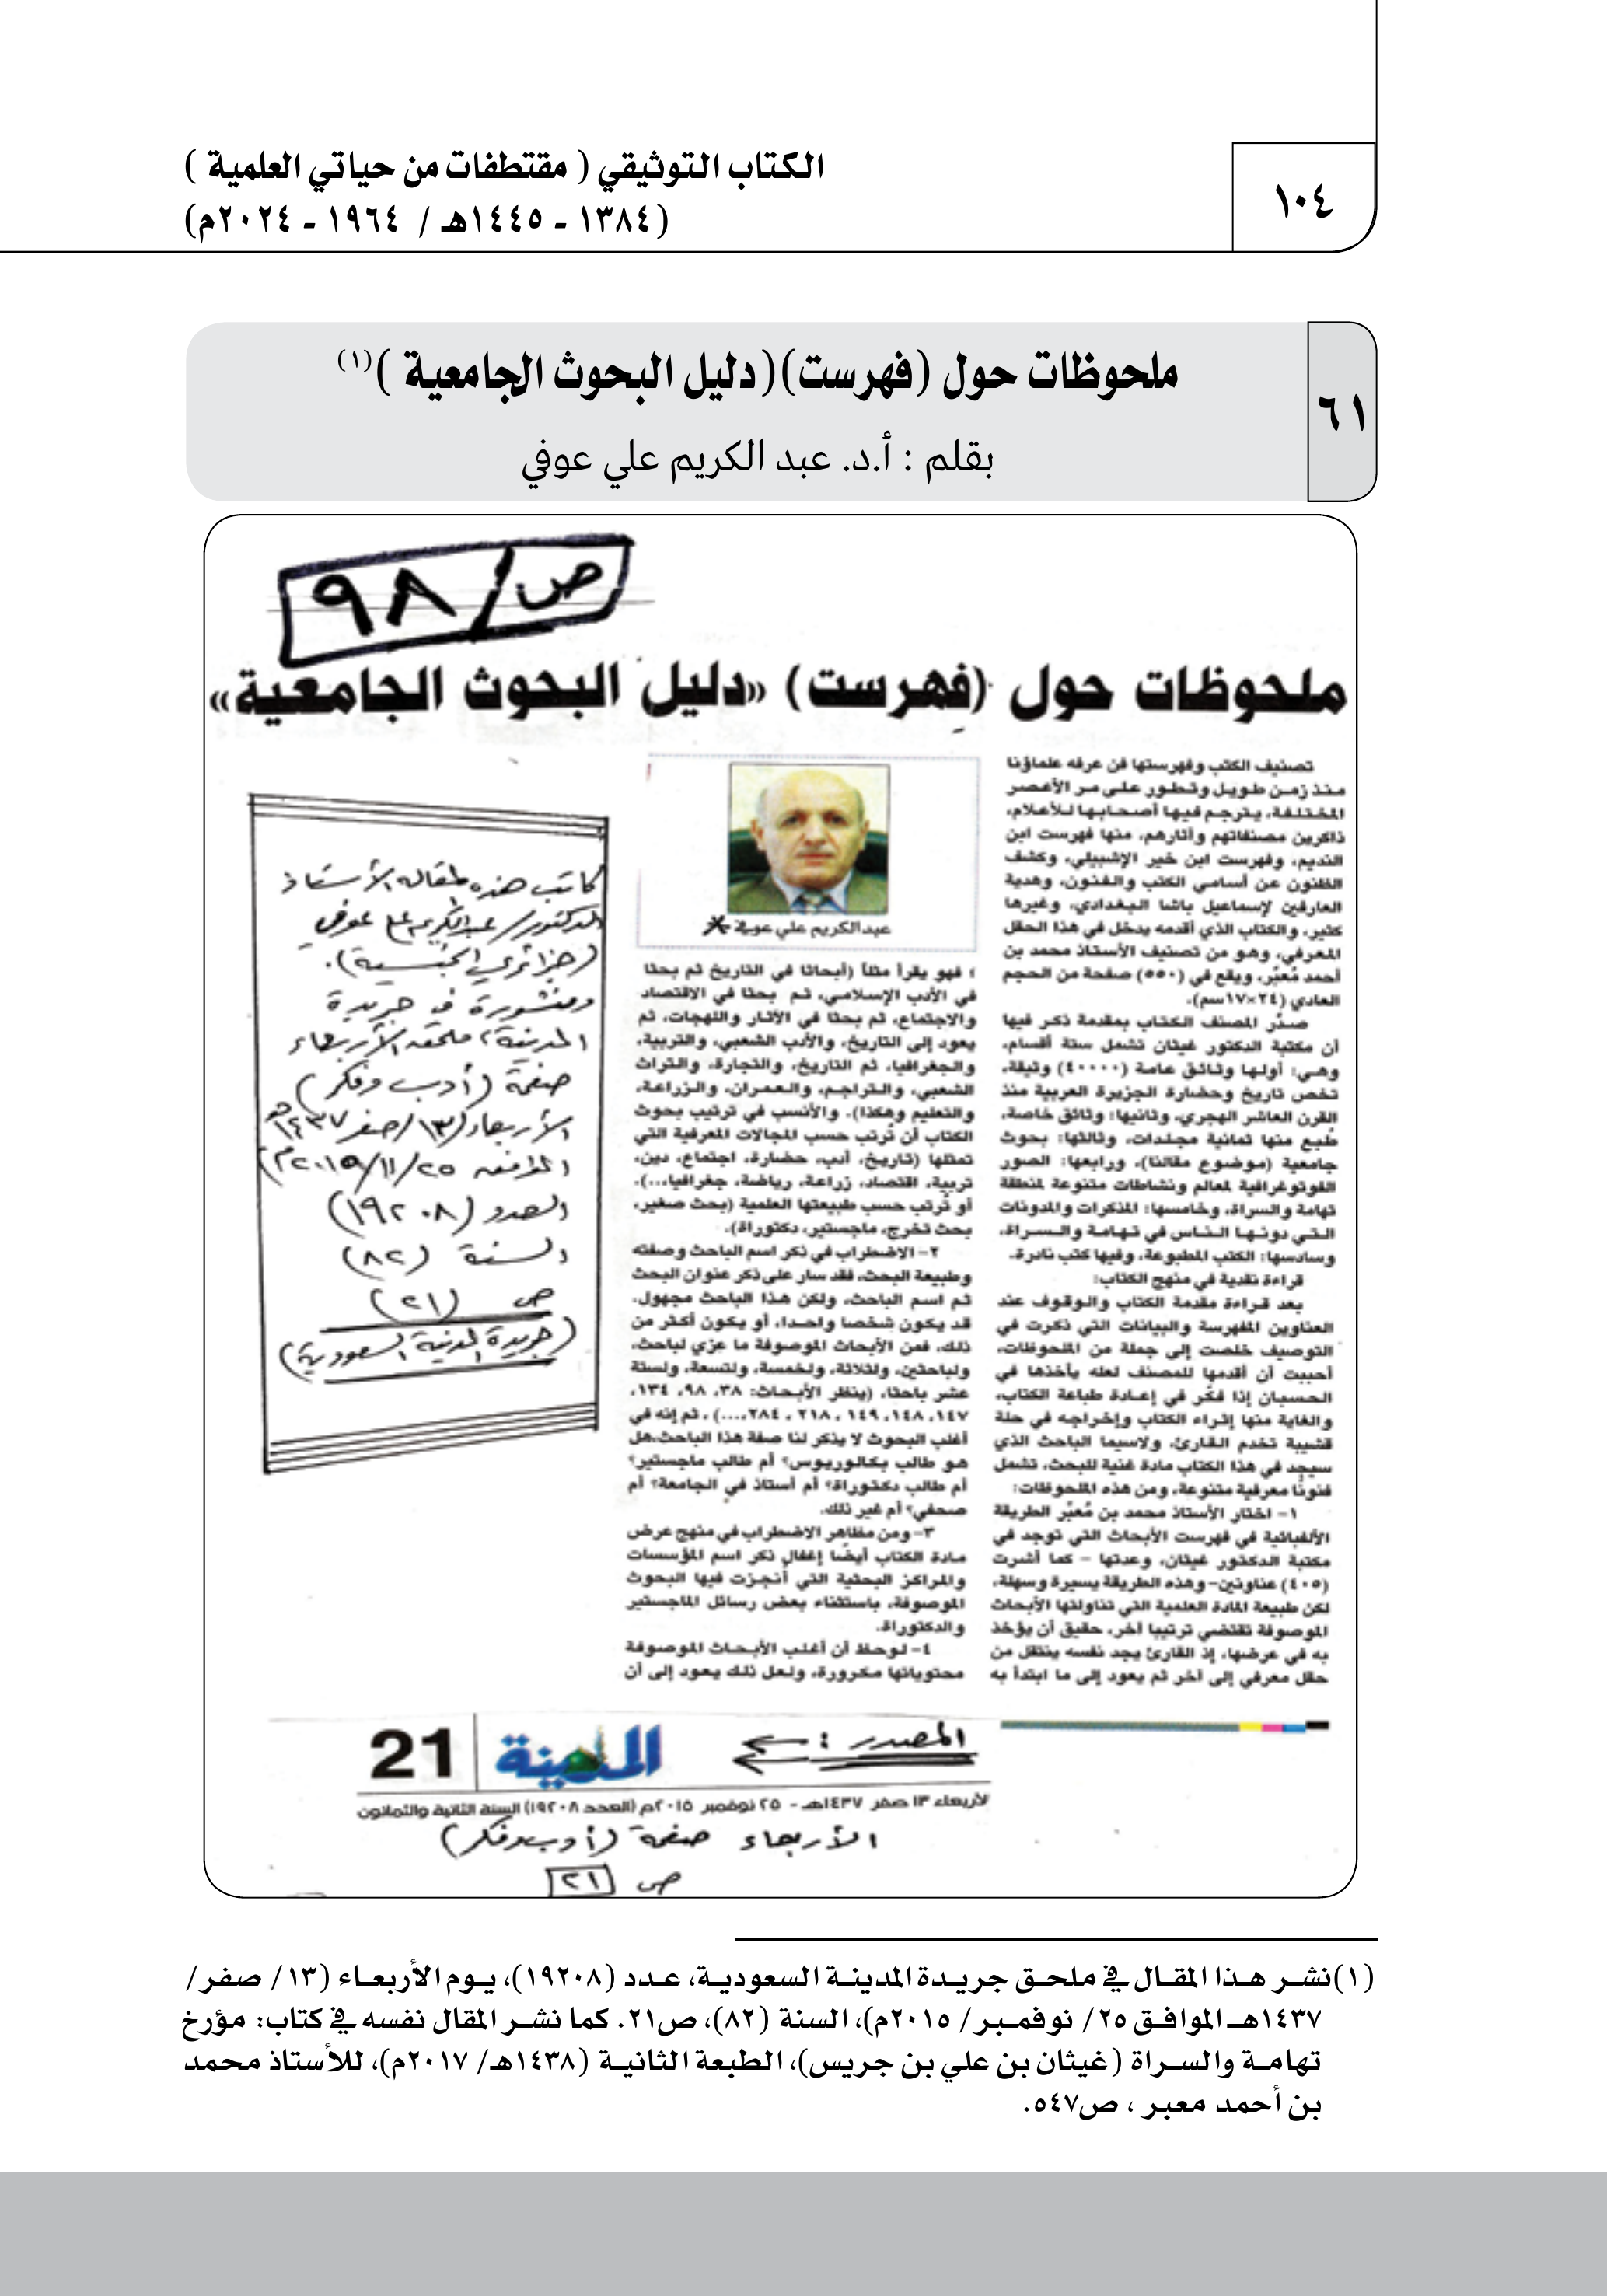 ١٠٤
الكتاب التوثيقي ( مقتطفات من حياتي العلمية )
(١٣٨٤ - ١٤٤٥هـ / ١٩٦٤ - ٢٠٢٤م)
٦١
ملحوظات حول (فهرست)(دليل البحوث الجامعية )(١)
بقلم : أ.د. عبد الكريم علي عوفي
ص/٩٨
ملحوظات حول (فهرست) «دليل البحوث الجامعية»
تصنيف الكتب وفهرستها فن عرفه علماؤنا
منذ زمن طويل وتطور على مر الأعصر
المختلفة، يترجم فيها أصحابها للأعلام،
ذاكرين مصنفاتهم وآثارهم، منها فهرست ابن
النديم، وفهرست ابن خير الإشبيلي، وكشف
الظنون عن أسامي الكتب والفنون، وهدية
العارفين لإسماعيل باشا البغدادي، وغيرها
كثير، والكتاب الذي أقدمه يدخل في هذا الحقل
المعرفي، وهو من تصنيف الأستاذ محمد بن
أحمد مُعبّر، ويقع في (٥٥٠) صفحة من الحجم
العادي (٢٤×١٧سم).
صدّر المصنف الكتاب بمقدمة ذكر فيها
أن مكتبة الدكتور غيثان تشمل ستة أقسام،
وهي: أولها وثائق عامة (٤٠٠٠٠) وثيقة،
تخص تاريخ وحضارة الجزيرة العربية منذ
القرن العاشر الهجري، وثانيها: وثائق خاصة،
طُبع منها ثمانية مجلدات، وثالثها: بحوث
جامعية (موضوع مقالنا)، ورابعها: الصور
الفوتوغرافية لمعالم ونشاطات متنوعة لمنطقة
تهامة والسراة، وخامسها: المذكرات والمدونات
التي دونها الناس في تهامة والسراة،
وسادسها: الكتب المطبوعة، وفيها كتب نادرة.
قراءة نقدية في منهج الكتاب:
بعد قراءة مقدمة الكتاب والوقوف عند
العناوين المفهرسة والبيانات التي ذكرت في
التوصيف خلصت إلى جملة من الملحوظات،
أحببت أن أقدمها للمصنف لعله يأخذها في
الحسبان إذا فكّر في إعادة طباعة الكتاب،
والغاية منها إثراء الكتاب وإخراجه في حلة
قشيبة تخدم القارئ، ولاسيما الباحث الذي
سيجد في هذا الكتاب مادة غنية للبحث، تشمل
فنونًا معرفية متنوعة، ومن هذه الملحوظات:
١- اختار الأستاذ محمد بن مُعبّر الطريقة
الألفبائية في فهرست الأبحاث التي توجد في
مكتبة الدكتور غيثان، وعدتها - كما أشرت
(٤٠٥) عناوين- وهذه الطريقة يسيرة وسهلة،
لكن طبيعة المادة العلمية التي تناولتها الأبحاث
الموصوفة تقتضي ترتيبا آخر، حقيق أن يؤخذ
به في عرضها، إذ القارئ يجد نفسه ينتقل من
حقل معرفي إلى آخر ثم يعود إلى ما ابتدأ به
عبدالكريم علي عوفي
؛ فهو يقرأ مثلاً (أبحاثا في التاريخ ثم بحثا
في الأدب الإسلامي، ثم بحثا في الاقتصاد
والاجتماع، ثم بحثا في الآثار واللهجات، ثم
يعود إلى التاريخ، والأدب الشعبي، والتربية،
والجغرافيا، ثم التاريخ، والتجارة، والتراث
الشعبي، والتراجم، والعمران، والزراعة،
والتعليم وهكذا). والأنسب في ترتيب بحوث
الكتاب أن تُرتب حسب المجالات المعرفية التي
تمثلها (تاريخ، أدب، حضارة، اجتماع، دين،
تربية، اقتصاد، زراعة، رياضة، جغرافيا...)،
أو تُرتب حسب طبيعتها العلمية (بحث صغير،
بحث تخرج، ماجستير، دكتوراة).
٢- الاضطراب في ذكر اسم الباحث وصفته
وطبيعة البحث، فقد سار على ذكر عنوان البحث
ثم اسم الباحث، ولكن هذا الباحث مجهول،
قد يكون شخصا واحدا، أو يكون أكثر من
ذلك، فمن الأبحاث الموصوفة ما عزي لباحث،
ولباحثين، ولثلاثة، ولخمسة، ولتسعة، ولستة
عشر باحثا، (ينظر الأبحاث: ٣٨، ٩٨، ١٣٤،
١٤٧، ١٤٨، ١٤٩، ٢١٨، ٢٨٤،...)، ثم إنه في
أغلب البحوث لا يذكر لنا صفة هذا الباحث،هل
هو طالب بكالوريوس؟ أم طالب ماجستير؟
أم طالب دكتوراة؟ أم أستاذ في الجامعة؟ أم
صحفي؟ أم غير ذلك.
٣- ومن مظاهر الاضطراب في منهج عرض
مادة الكتاب أيضًا إغفال ذكر اسم المؤسسات
والمراكز البحثية التي أُنجزت فيها البحوث
الموصوفة، باستثناء بعض رسائل الماجستير
والدكتوراة.
٤- لوحظ أن أغلب الأبحاث الموصوفة
محتوياتها مكرورة، ولعل ذلك يعود إلى أن
كاتب هذه المقالة الأستاذ
الدكتور/ عبدالكريم علي عوفي
(جزائري الجنسية).
ومنشورة في جريدة
المدينة، ملحق الأربعاء
صفحة (أدب وفكر)
الأربعاء (١٣/صفر/١٤٣٧هـ
الموافق ٢٥/١١/٢٠١٥م)
العدد (١٩٢٠٨)
السنة (٨٢)
ص (٢١)
(جريدة المدينة السعودية)
المصدر :
المدينة
21
الأربعاء ١٣ صفر ١٤٣٧هـ - ٢٥ نوفمبر ٢٠١٥م (العدد ١٩٢٠٨) السنة الثانية والثمانون
الأربعاء صفحة (أدب وفكر)
ص ٢١
(١)نشر هذا المقال في ملحق جريدة المدينة السعودية، عدد (١٩٢٠٨)، يوم الأربعاء (١٣/ صفر/
١٤٣٧هـ الموافق ٢٥/ نوفمبر/ ٢٠١٥م)، السنة (٨٢)، ص٢١. كما نشر المقال نفسه في كتاب: مؤرخ
تهامة والسراة (غيثان بن علي بن جريس)، الطبعة الثانية (١٤٣٨هـ/ ٢٠١٧م)، للأستاذ محمد
بن أحمد معبر ، ص٥٤٧.